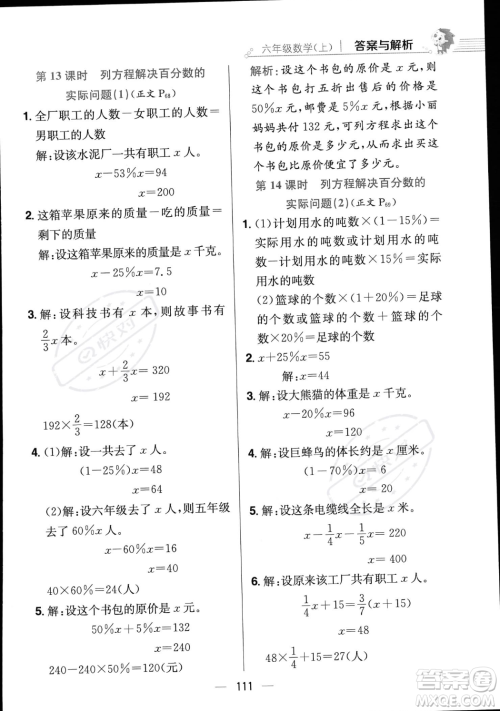 六年级数学(上) 答案与解析
第13课时 列方程解决百分数的
实际问题(1)(正文P₆₈)
1. 全厂职工的人数－女职工的人数＝
男职工的人数
解:设该水泥厂一共有职工 x 人。
x－53%x＝94
x＝200
2. 这箱苹果原来的质量－吃了的质量＝
剩下的质量
解:设这箱苹果原来的质量是 x 千克。
x－25%x＝7.5
x＝10
3. 解:设科技书有 x 本,则故事书有
2/3x 本。
x＋2/3x＝320
x＝192
192×2/3＝128(本)
4. (1)解:设一共去了 x 人。
(1－25%)x＝48
x＝64
(2)解:设六年级去了 x 人,则五年级
去了 60%x 人。
x－60%x＝16
x＝40
40×60%＝24(人)
5. 解:设这个书包的原价是 x 元。
50%x＋5%x＝132
x＝240
240－240×50%＝120(元)
解析:设这个书包的原价是 x 元,则
这个书包打五折出售后的价格是
50%x 元,邮费是 5%x 元,根据小丽
妈妈共付 132 元,可列方程求出这个
书包的原价是多少元,从而求出买这
个书包比原价便宜了多少元。
第14课时 列方程解决百分数的
实际问题(2)(正文P₆₉)
1. (1)计划用水的吨数×(1－15%)＝
实际用水的吨数
计划用水的吨数－计划用水的吨
数×15%＝实际用水的吨数
(2)篮球的个数×(1＋20%)＝足球
的个数
篮球的个数＋篮球的个数×
20%＝足球的个数
2. x＋25%x＝55
解:x＝44
3. 解:设大熊猫的体重是 x 千克。
x－20%x＝96
x＝120
4. 解:设巨蜂鸟的体长约是 x 厘米。
x＋260%x＝21.6
x＝6
5. 解:设这条电缆线全长是 x 米。
x－1/4x－1/4x×80%＝220
x＝400
6. 解:设原来该工厂共有职工 x 人。
1/4x＋15＝3/7(x＋15)
x＝48
48×1/4＋15＝27(人)
111